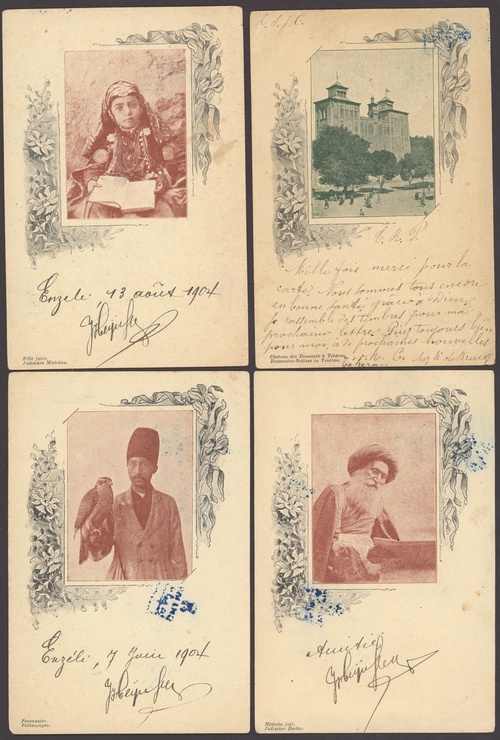 Enzeli, 13 août 1904
Fille juive.
Jüdisches Mädchen.
E. R. P.
Mille fois merci pour la
carte. Nous sommes tous encore
en bonne santé grace à Dieu.
Je rassemble des timbres pour ma
prochaine lettre.
pour moi, à de prochaines nouvelles
Château des Diamants à Téhéran.
Diamanten-Schloss in Teheran.
Enzéli, 7 Juin 1904
Fauconnier.
Falkenjäger.
Amitié
Médecin juif.
Jüdischer Doctor.